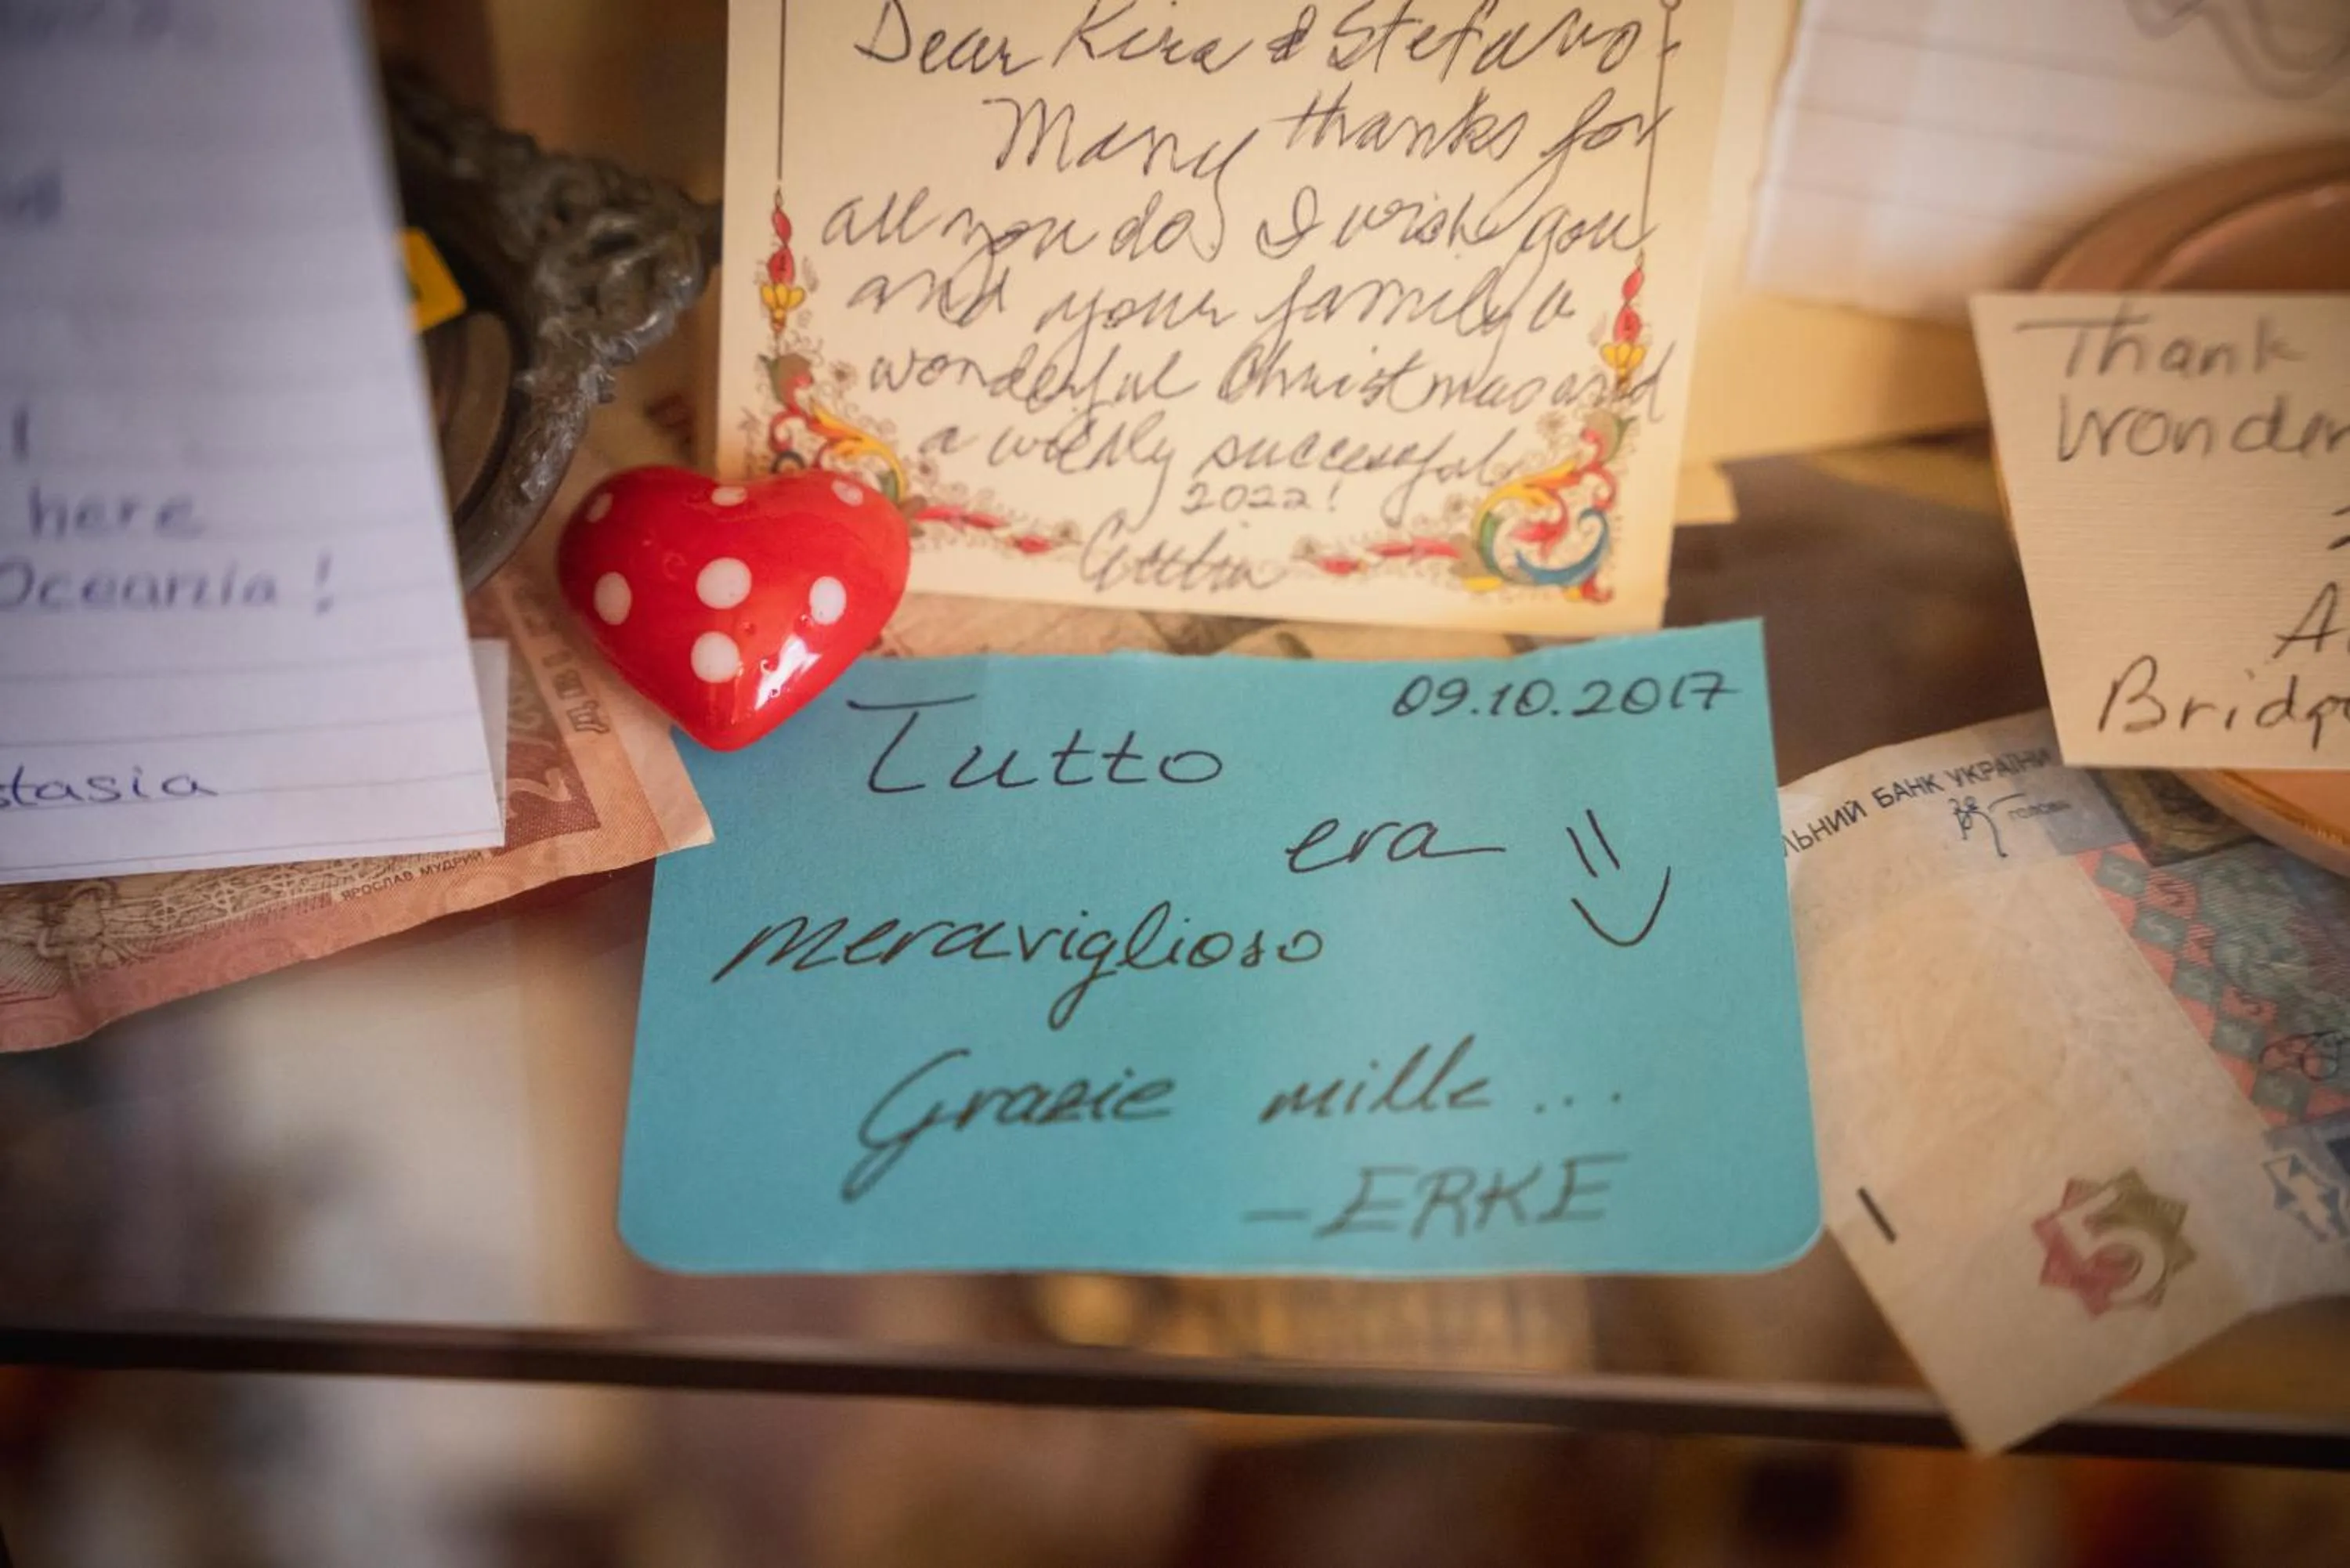 here
Oceania!
stasia
ЯРОСЛАВ МУДРИЙ
Dear Kira & Stefano-
Many thanks for
all you do. I wish you
and your family a
wonderful Christmas and
a wildly successful
2022!
09.10.2017
Tutto
era
meraviglioso
Grazie mille...
–ERKE
Thank
Wonder
A
Bridg
ЛЬНИЙ БАНК УКРАЇНИ
ГОЛОВА
5